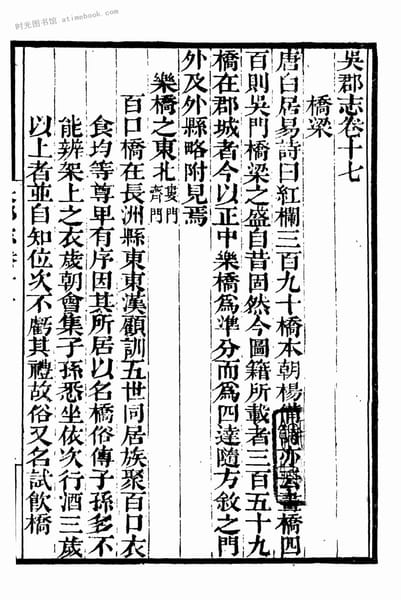 时光图书馆 atimebook.com
吳郡志卷十七
橋梁
唐白居易詩曰紅欄三百九十橋本朝楊備詩亦云畫橋四
百則吳門橋梁之盛自昔固然今圖籍所載者三百五十九
橋在郡城者今以正中樂橋為準分而為四達隨方敘之門
外及外縣略附見焉
樂橋之東北婁門齊門
百口橋在長洲縣東東漢顧訓五世同居族聚百口衣
食均等尊卑有序因其所居以名橋俗傳子孫多不
能辨架上之衣歲朝會集子孫悉坐依次行酒三歲
以上者並自知位次不虧其禮故俗又名試飲橋